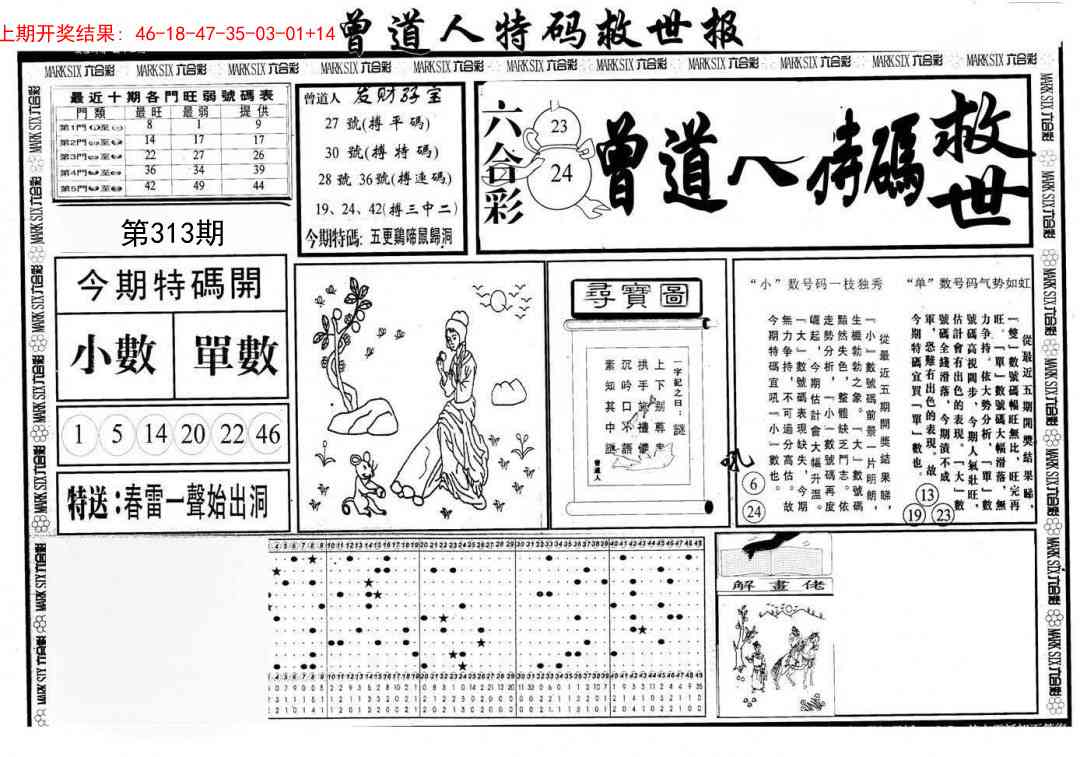 上期开奖结果：46-18-47-35-03-01+14
曾道人特码救世报
MARK SIX 六合彩 MARK SIX 六合彩 MARK SIX 六合彩 MARK SIX 六合彩 MARK SIX 六合彩 MARK SIX 六合彩 MARK SIX 六合彩 MARK SIX 六合彩 MARK SIX 六合彩 MARK SIX 六合彩 MARK SIX 六合彩
最近十期各門旺弱號碼表
門類 最旺 最弱 提供
第1門 8 1 9
第2門 14 17 17
第3門 22 27 26
第4門 36 34 39
第5門 42 49 44
第313期
今期特碼開
小數 單數
1 5 14 20 22 46
特送：春雷一聲始出洞
曾道人 发财好宝
27 號(搏平碼)
30 號(搏特碼)
28 號 36號(搏連碼)
19、24、42(搏三中二)
今期特碼: 五更鷄啼鼠歸洞
六合彩
23
24
曾道人特碼救世
尋寶圖
一字記之曰：謎
上下别尊卑
拱手旅禮儀
沉吟口不語
素知其中謎
曾道人
“小”数号码一枝独秀
從最近五期開獎結果睇，
『小』數號碼前景一片明朗，
生機勃勃之象。『大』數號碼
黯然失色，整體缺乏鬥志。依
走勢分析，『小』數號碼再度
崛起，今期估計會大幅升溫。
『大』數號碼表現缺失，今期
無力争持，不可追分高估。故
今期特碼宜吼『小』數也。
吼
6
24
“单”数号码气势如虹
從最近五期開獎結果睇，
『雙』數號碼幅旺無比，旺完再
旺。『單』數號碼大幅滑落，無
力争持。依大勢分析，『單』數
號碼高視闊步，今期人氣壯旺，
估計會有出色的表現。『大』數
號碼全錢滑落，今期潰不成
軍，恐難有出色的表現。故
今期特碼宜買『單』數也。
13
19 23
4 5 6 7 8 9 10 11 12 13 14 15 16 17 18 19 20 21 22 23 24 25 26 27 28 29 30 31 32 33 34 35 36 37 38 39 40 41 42 43 44 45 46 47 48 49
解畫佬